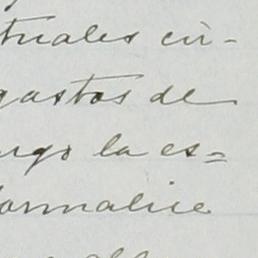 tuales cir-
gastos de
argo la es-
formalice